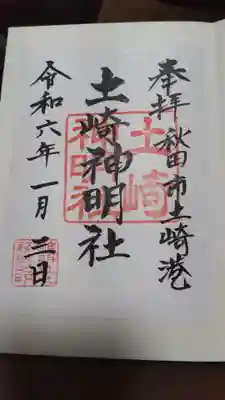 奉拝 秋田市土崎港
土崎神明社
土崎
神明社
令和六年一月三日